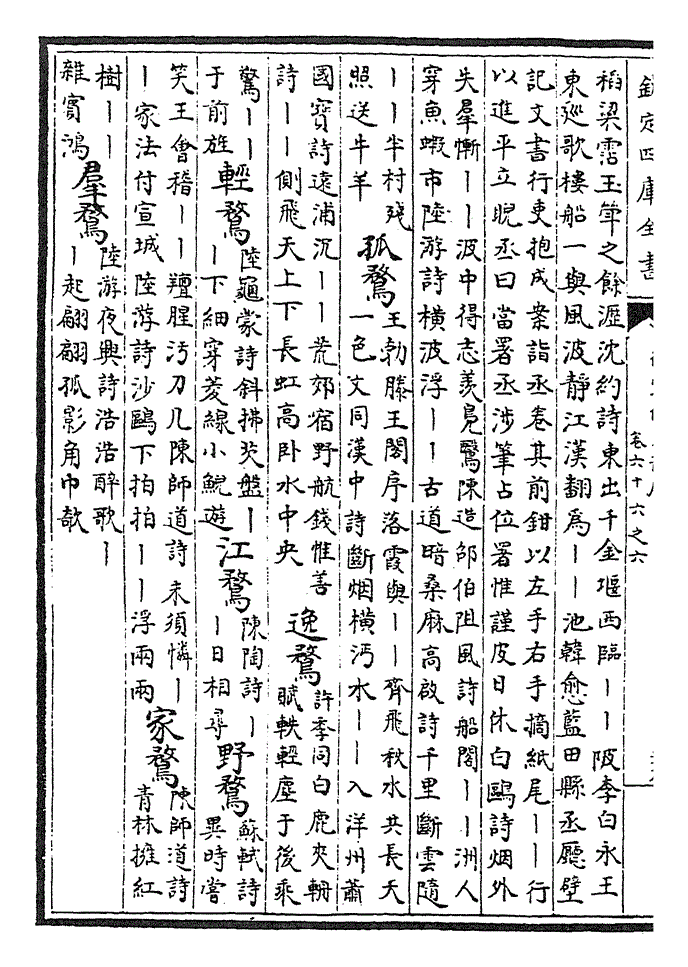 欽定四庫全書
卷六十六之六
稻粱霑玉斝之餘瀝沈約詩東出千金堰西臨丨丨陂李白永王
東廵歌樓船一舉風波靜江漢翻為丨丨池韓愈藍田縣丞廳壁
記文書行吏抱成案詣丞卷其前鉗以左手右手摘紙尾丨丨行
以進平立睨丞曰當署丞涉筆占位署惟謹皮日休白鷗詩烟外
失羣慚丨丨波中得志羨鳧鷖陳造邵伯阻風詩船閣丨丨洲人
穿魚蝦市陸游詩橫波浮丨丨古道暗桑麻高啟詩千里斷雲隨
丨丨半村殘
照送牛羊
孤鶩
王勃滕王閣序落霞與丨丨齊飛秋水共長天
一色文同漢中詩斷烟橫沔水丨丨入洋州蕭
國寶詩遠浦沉丨丨荒郊宿野航錢惟善
詩丨丨側飛天上下長虹高卧水中央
逸鶩
許季同白鹿夾輈
賦軼輕塵于後乘
驚丨丨
于前旌
輕鶩
陸龜蒙詩斜拂芡盤丨
丨下細穿菱線小鯢遊
江鶩
陳陶詩丨
丨日相尋
野鶩
蘇軾詩
異時嘗
笑王會稽丨丨羶腥汚刀几陳師道詩未須憐丨
丨家法付宣城陸游詩沙鷗下拍拍丨丨浮兩兩
家鶩
陳師道詩
青林擁紅
樹丨丨
雜賓鴻
羣鶩
陸游夜興詩浩浩醉歌丨
丨起翩翩孤影角巾欹